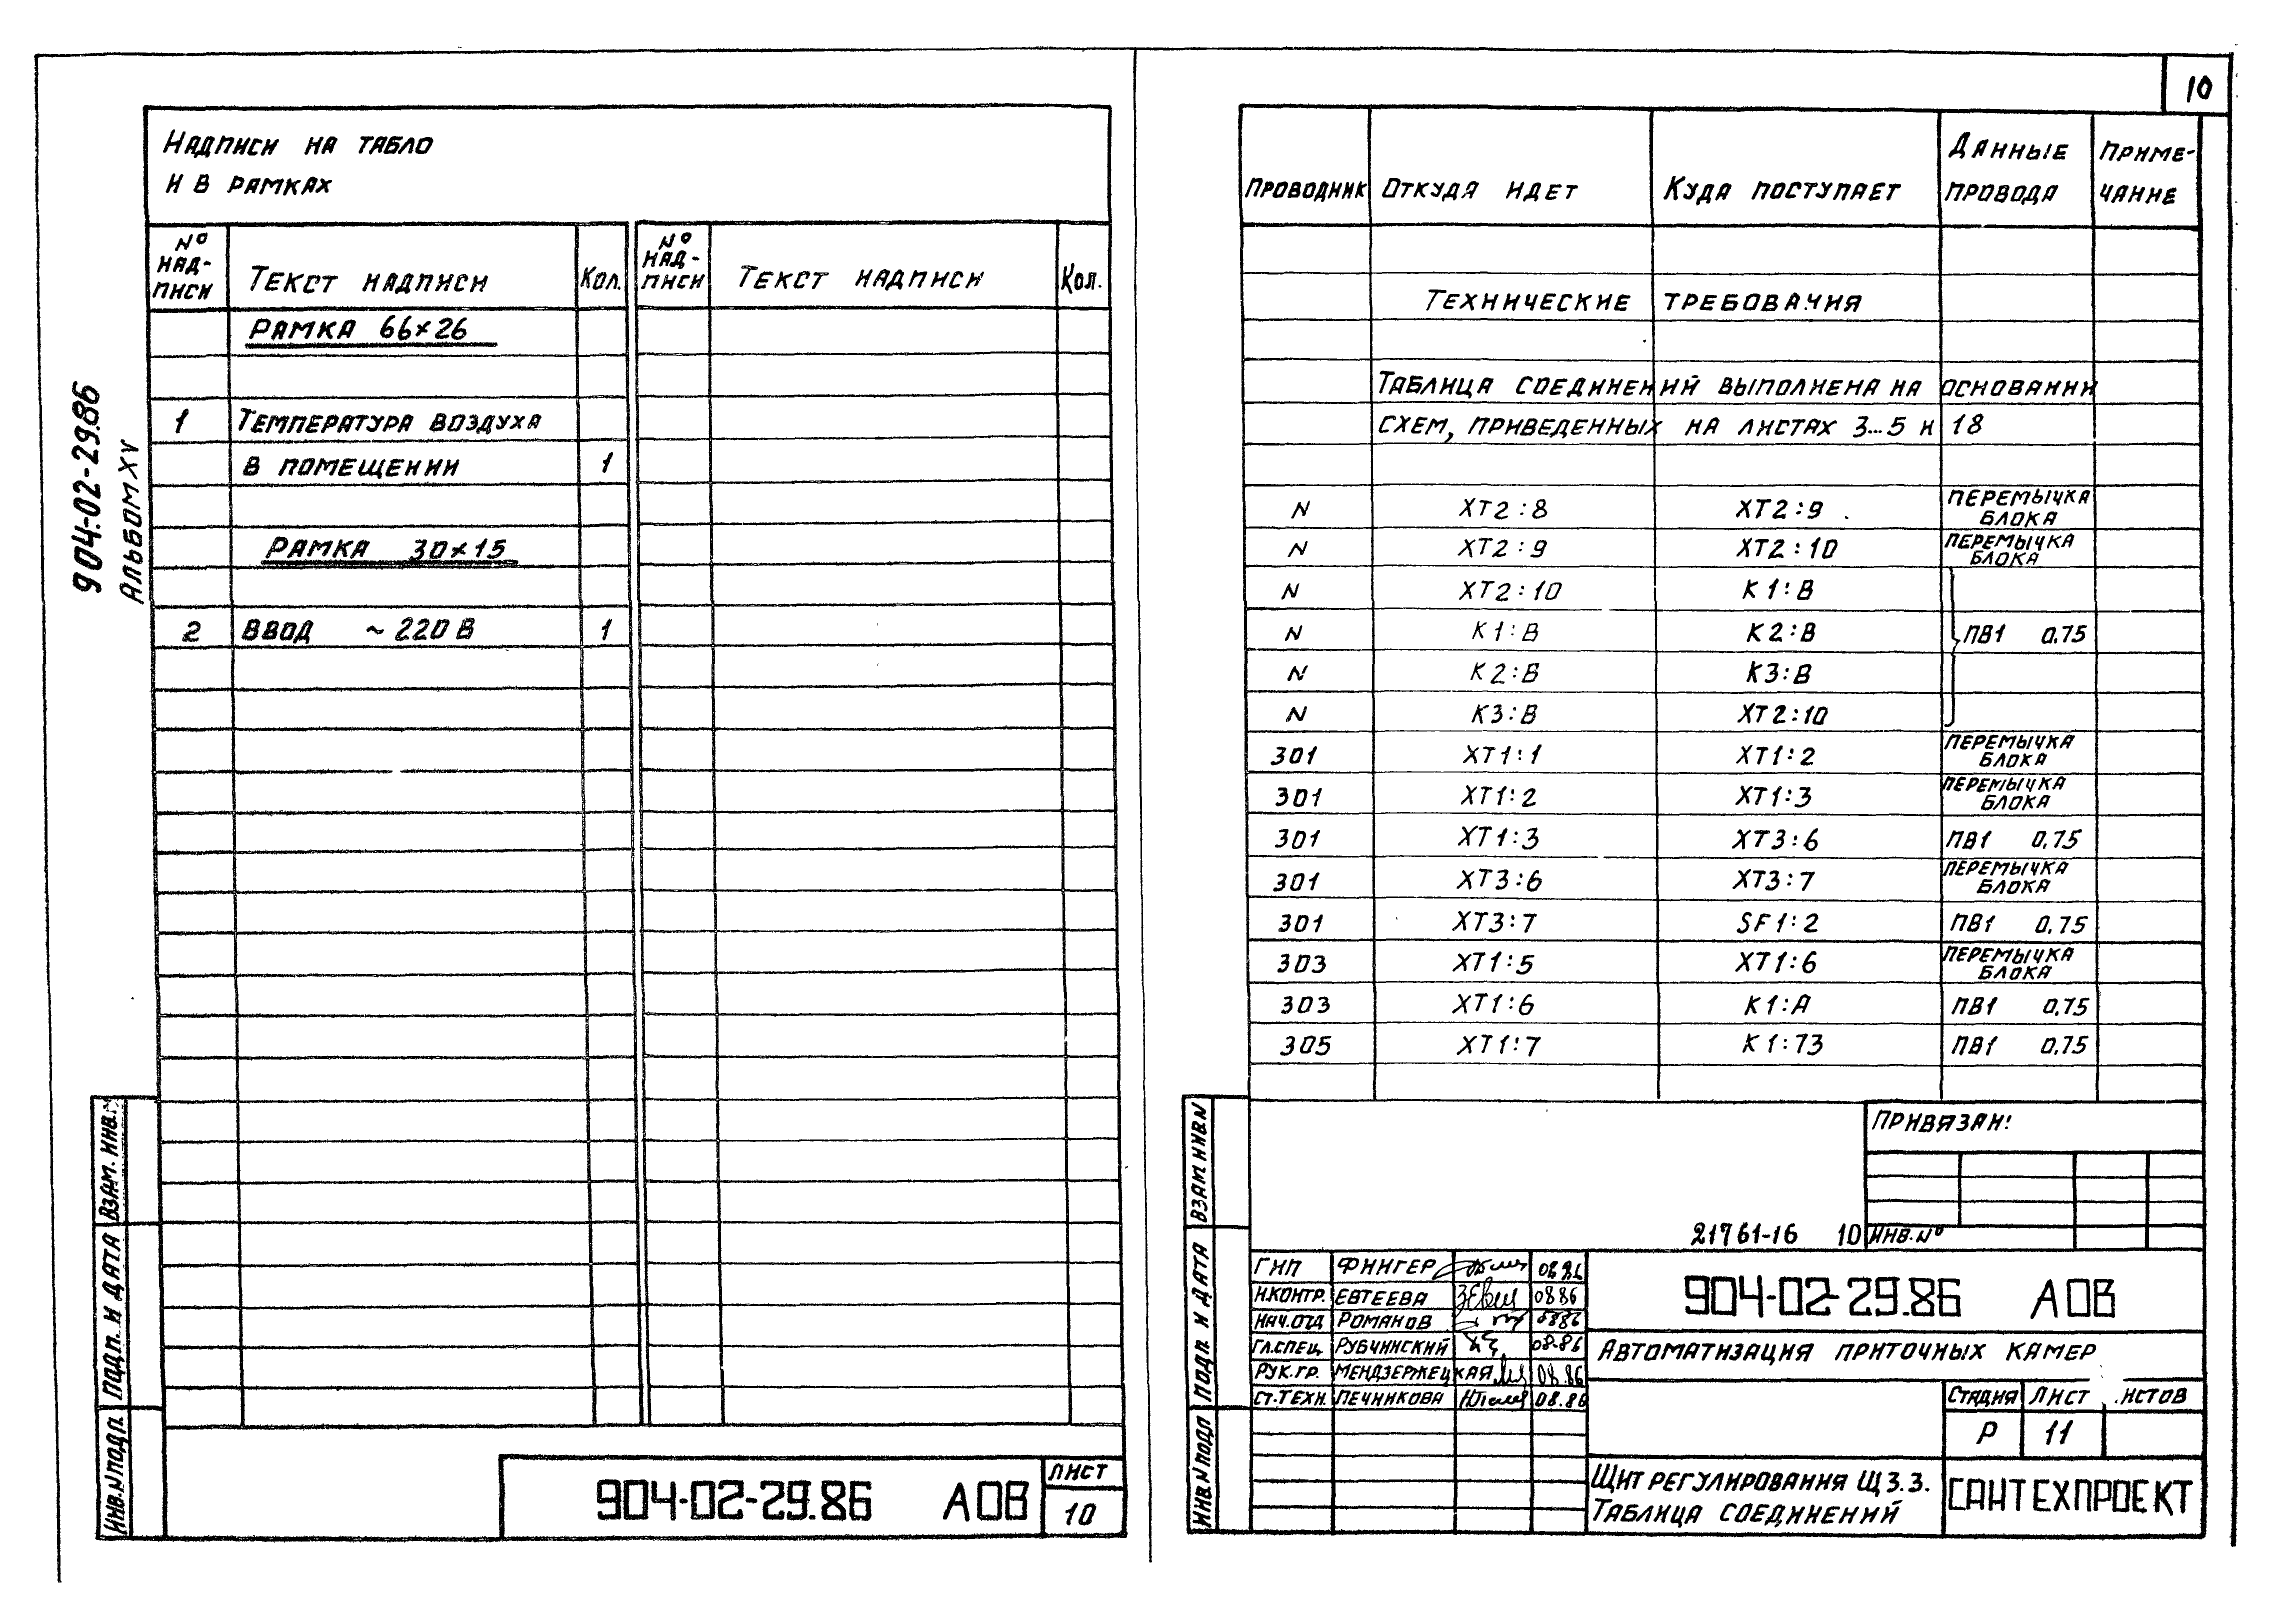 10
904-02-29.86
Альбом XV
Надписи на табло
и в рамках
№ надписи Текст надписи Кол. № надписи Текст надписи Кол.
Рамка 66×26
1 Температура воздуха
в помещении 1
Рамка 30×15
2 Ввод ~220 В 1
Взам. инв.№
Подп. и дата
Инв.№ подл.
904-02-29.86 АОВ
Лист
10
Проводник Откуда идет Куда поступает Данные провода Примечание
Технические требования
Таблица соединений выполнена на основании
схем, приведенных на листах 3...5 и 18
N XT2:8 XT2:9 перемычка блока
N XT2:9 XT2:10 перемычка блока
N XT2:10 K1:B
N K1:B K2:B ПВ1 0.75
N K2:B K3:B
N K3:B XT2:10
301 XT1:1 XT1:2 перемычка блока
301 XT1:2 XT1:3 перемычка блока
301 XT1:3 XT3:6 ПВ1 0,75
301 XT3:6 XT3:7 перемычка блока
301 XT3:7 SF1:2 ПВ1 0,75
303 XT1:5 XT1:6 перемычка блока
303 XT1:6 K1:A ПВ1 0,75
305 XT1:7 K1:73 ПВ1 0,75
Привязан:
21761-16 10 Инв.№
Взам инв.N
Подп. и дата
Инв.N подл
ГИП Фингер 08 86
Н.контр. Евтеева 08 86
Нач.отд Романов 0886
Гл.спец. Рубчинский 08.86
Рук.гр. Мендзержецкая 08.86
Ст.техн. Печникова 08.86
904-02-29.86 АОВ
Автоматизация приточных камер
Стадия Лист .истов
Р 11
Щит регулирования Щ3.3.
Таблица соединений
Сантехпроект